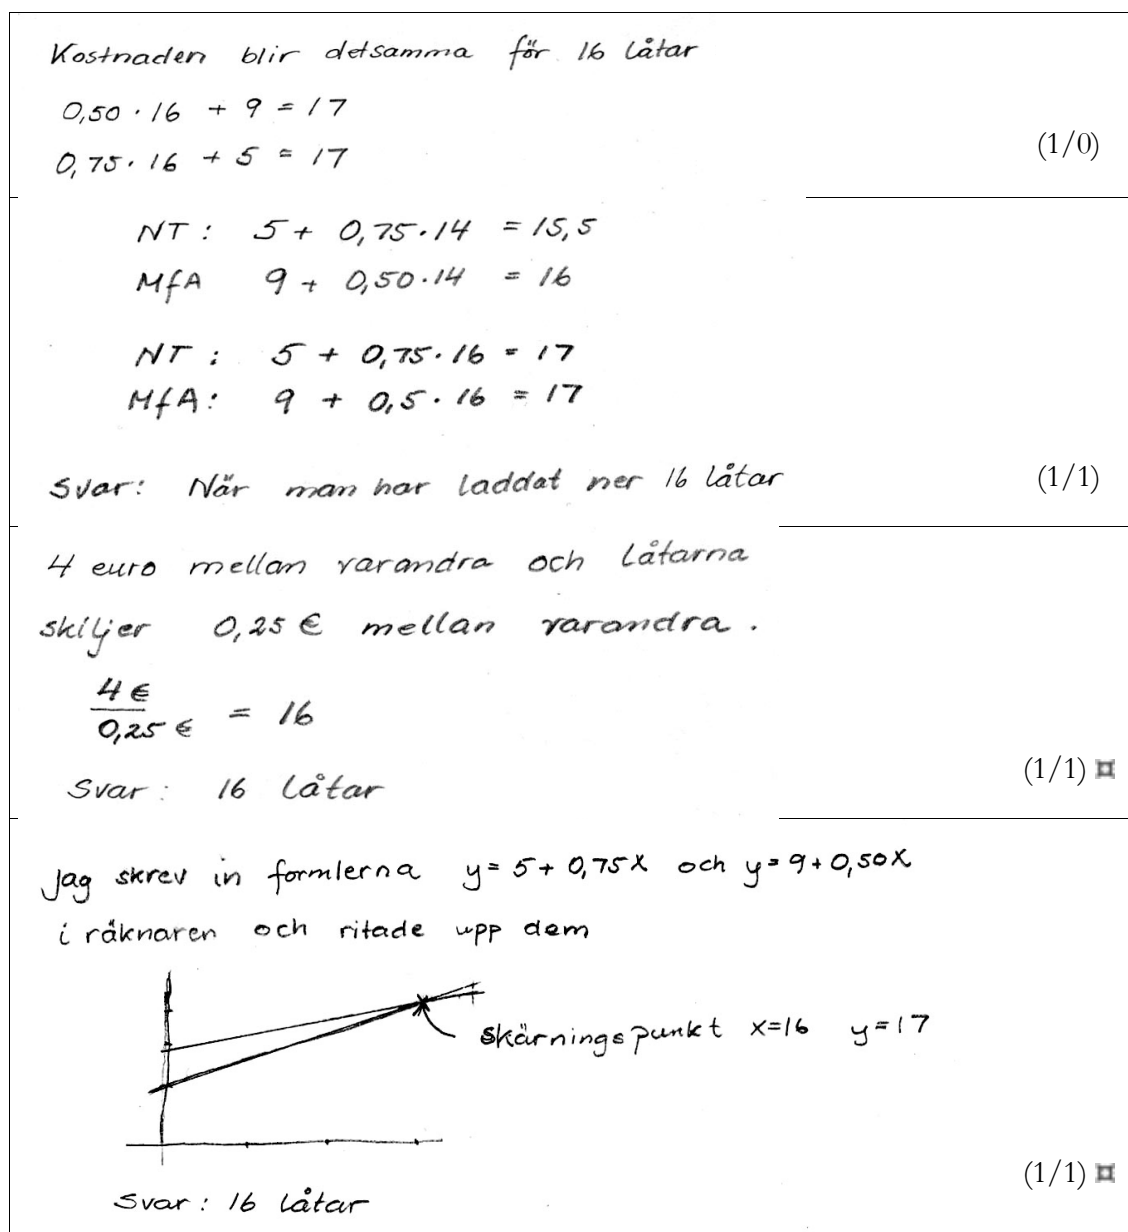 Kostnaden blir detsamma för 16 låtar
0,50 · 16 + 9 = 17
0,75 · 16 + 5 = 17
(1/0)
NT: 5 + 0,75 · 14 = 15,5
MfA 9 + 0,50 · 14 = 16
NT: 5 + 0,75 · 16 = 17
MfA: 9 + 0,5 · 16 = 17
Svar: När man har laddat ner 16 låtar
(1/1)
4 euro mellan varandra och låtarna
skiljer 0,25 € mellan varandra.
4 €
0,25 € = 16
Svar: 16 låtar
(1/1) ¤
Jag skrev in formlerna y = 5 + 0,75X och y = 9 + 0,50X
i räknaren och ritade upp dem
skärningspunkt x=16 y=17
(1/1) ¤
Svar: 16 låtar